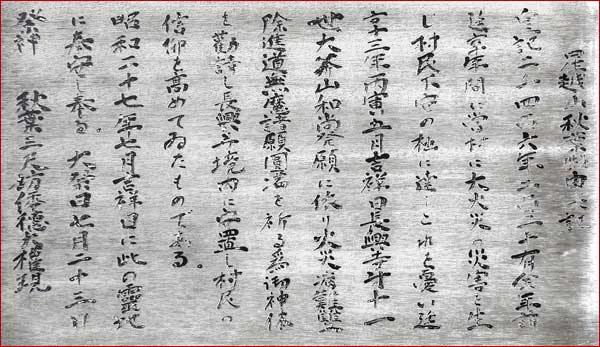 越山秋葉山由来記
皇記二千四百六年 二百有余年前
年間に当村に大火災の災害を生
じ村民不安の極に達しこれを憂い延
享三年丙寅五月吉祥日長興寺十一
世大山和尚発願に依り火災消難
除進道無魔諸願圓満を祈る爲御神徳
を勧請し長興寺境内に安置し村民の
信仰を高めてゐたものである。
昭和二十七年七月吉祥日に此の靈地
に奉安し奉る。大祭日七月二十三日
祭神 秋葉三尺坊大権現